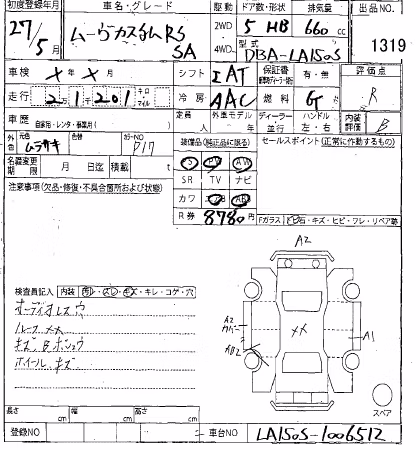 初度登録年月 車名・グレード 駆動 ドア数・形状 排気量 出品NO
27年5月 ムーヴカスタムRS SA 2WD 4WD 5 HB 660cc 1319
型式 DBA-LA150S
車検 X年X月 シフト IAT 保証書 有・無 評価点 R
走行 2万1千201 キロ マイル 冷房 AAC 燃料 G 内装評価 B
車歴 自家用・レンタ・事業用( ) 定員 人 外車モデル 年 ディーラー 並行 ハンドル 左・右
外色 元色 ムラサキ 色替 カラーNO P17 装備品(純正品に限る) セールスポイント(正常に作動するもの)
SR PS PW AW
名義変更期限 月 日迄 積載 t SR TV ナビ
注意事項(欠品・修復・不具合箇所および状態) カワ エアB ABS
R券 8780円 Fガラス トビ石・キズ・ヒビ・ワレ・リペア跡
A2
検査員記入 内装 ヨゴレ・スレ・キズ・キレ・コゲ・穴
オーディオレスウ
ルーフメメ
キズBボシュウ
ホイールキズ
A2 カバー
AB2
XX
A1
スペア
長さ cm 幅 cm 高さ cm
登録NO 車台NO LA150S-1006512